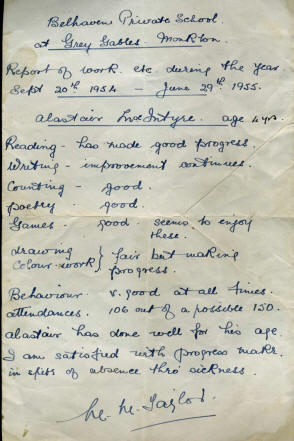 Belhaven Private School.
at Grey Gables Monkton.
Report of work. etc. during the year
Sept 20th 1954 — June 29th 1955.
Alastair McIntyre. age 4 yrs.
Reading - has made good progress.
Writing - improvement continues.
Counting - good.
poetry - good.
Games - good. seems to enjoy
these.
drawing
colour-work } fair but making
progress.
Behaviour. v. good at all times.
attendances. 106 out of a possible 150.
alastair has done well for his age.
I am satisfied with progress made.
in spite of absence thro' sickness.
M. Taylor.